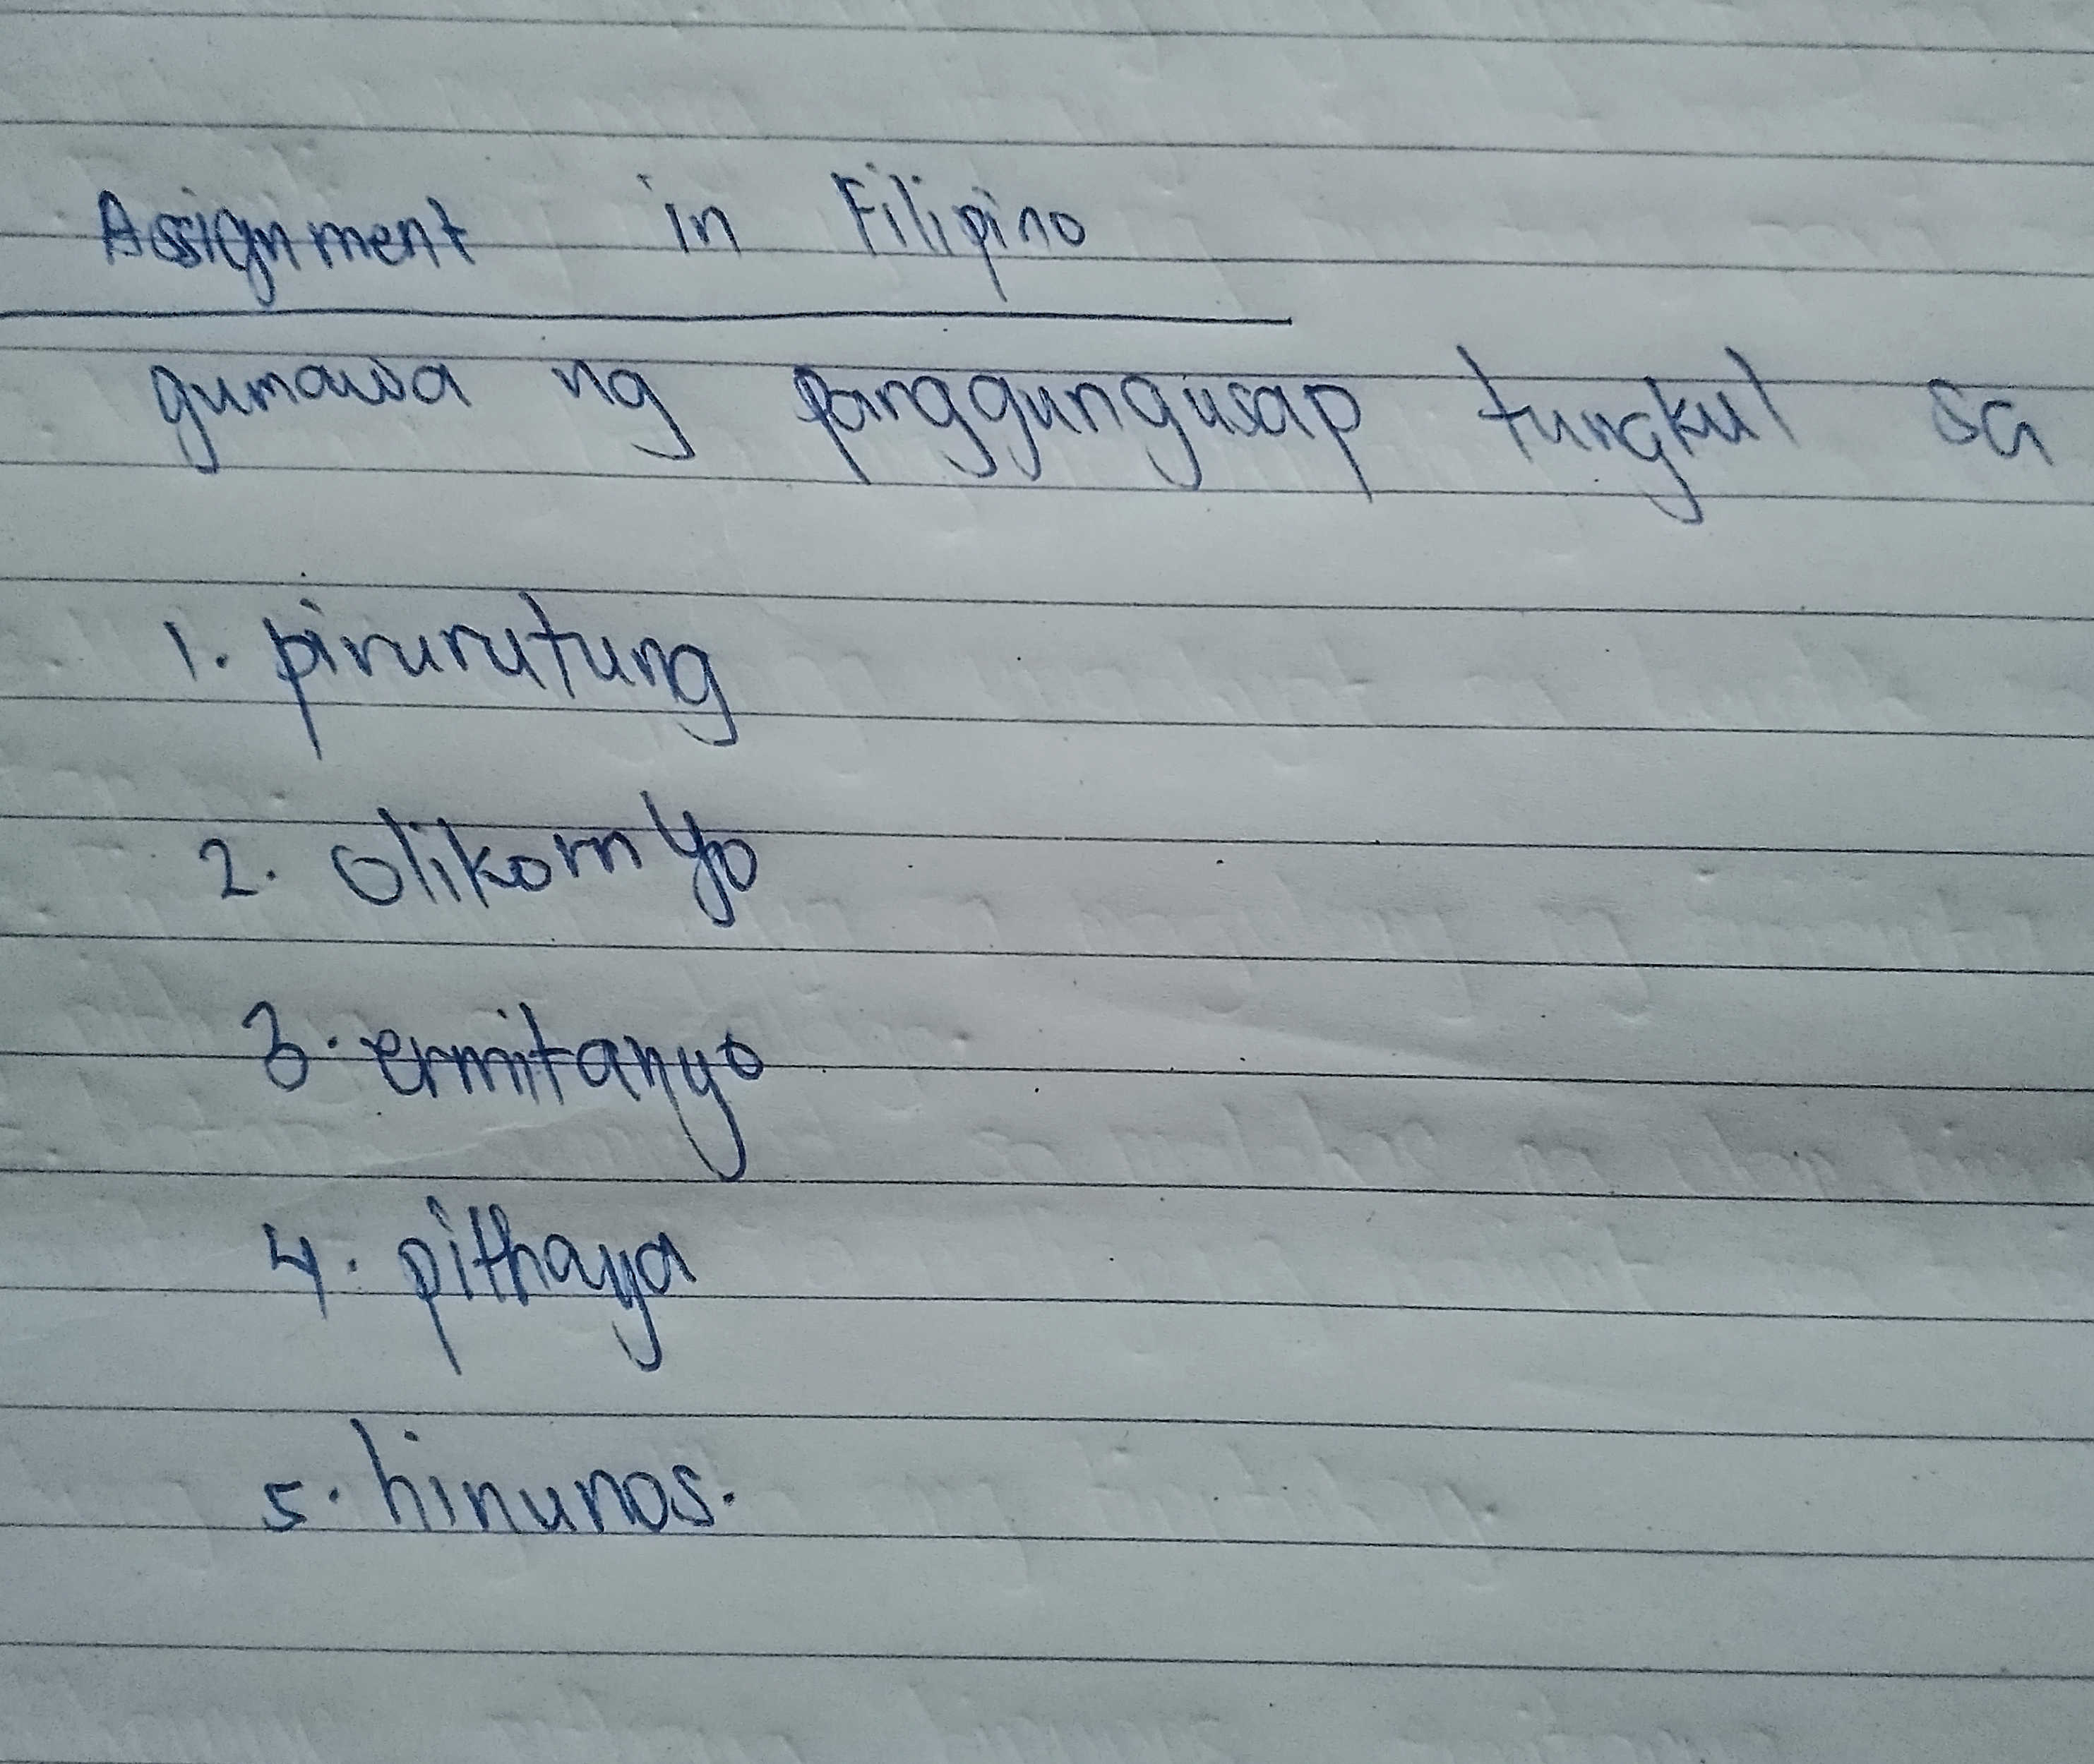 Assignment in Filipino
gumawa ng panggungusap tungkul sa
1. pirurutung
2. olikornyo
3. ermitanyo
4. pithaya
5. hinunos.